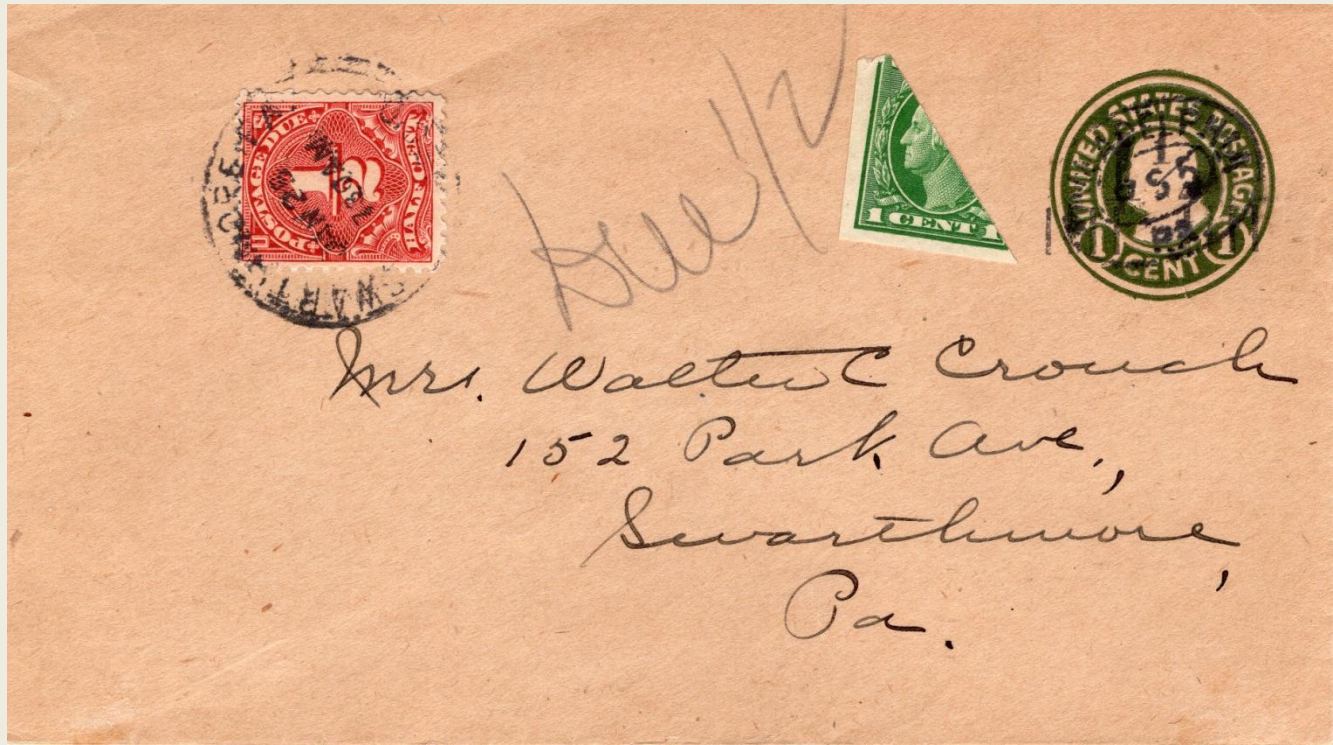 POSTAGE DUE
1/2
HALF CENT
Due 1/2
1 CENT 1
UNITED STATES POSTAGE
1 CENT 1
Mrs. Walter C Crouch
152 Park Ave.,
Swarthmore,
Pa.